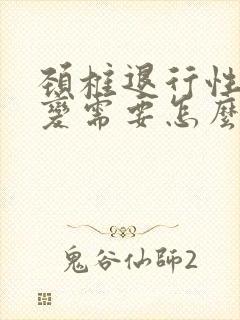 頚椎退行性
變需要怎麼
鬼谷仙師2